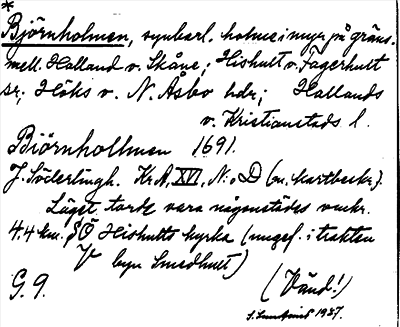 *
Björnholmen, synbarl. holme i myr på gräns.
mell. Halland o. Skåne; Hishult o. Fagerhult
sr; Höks o. N. Åsbo hdr; Hallands
o. Kristianstads l.
Biörnhollmen 1691.
J. Söderlingh. Kr. A, XVI, N:o D (m. kartbeskr.).
Läget torde vara någonstädes omkr.
4.4 km. SÖ Hishults kyrka (ungef. i trakten
V byn Smedhult)
G. 9. (Vänd!)
1937.